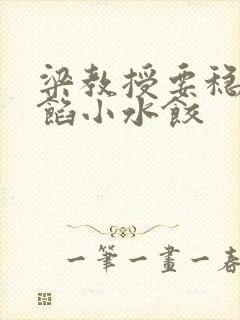 梁教授要稳
馅小水餃
一筆一畫一春